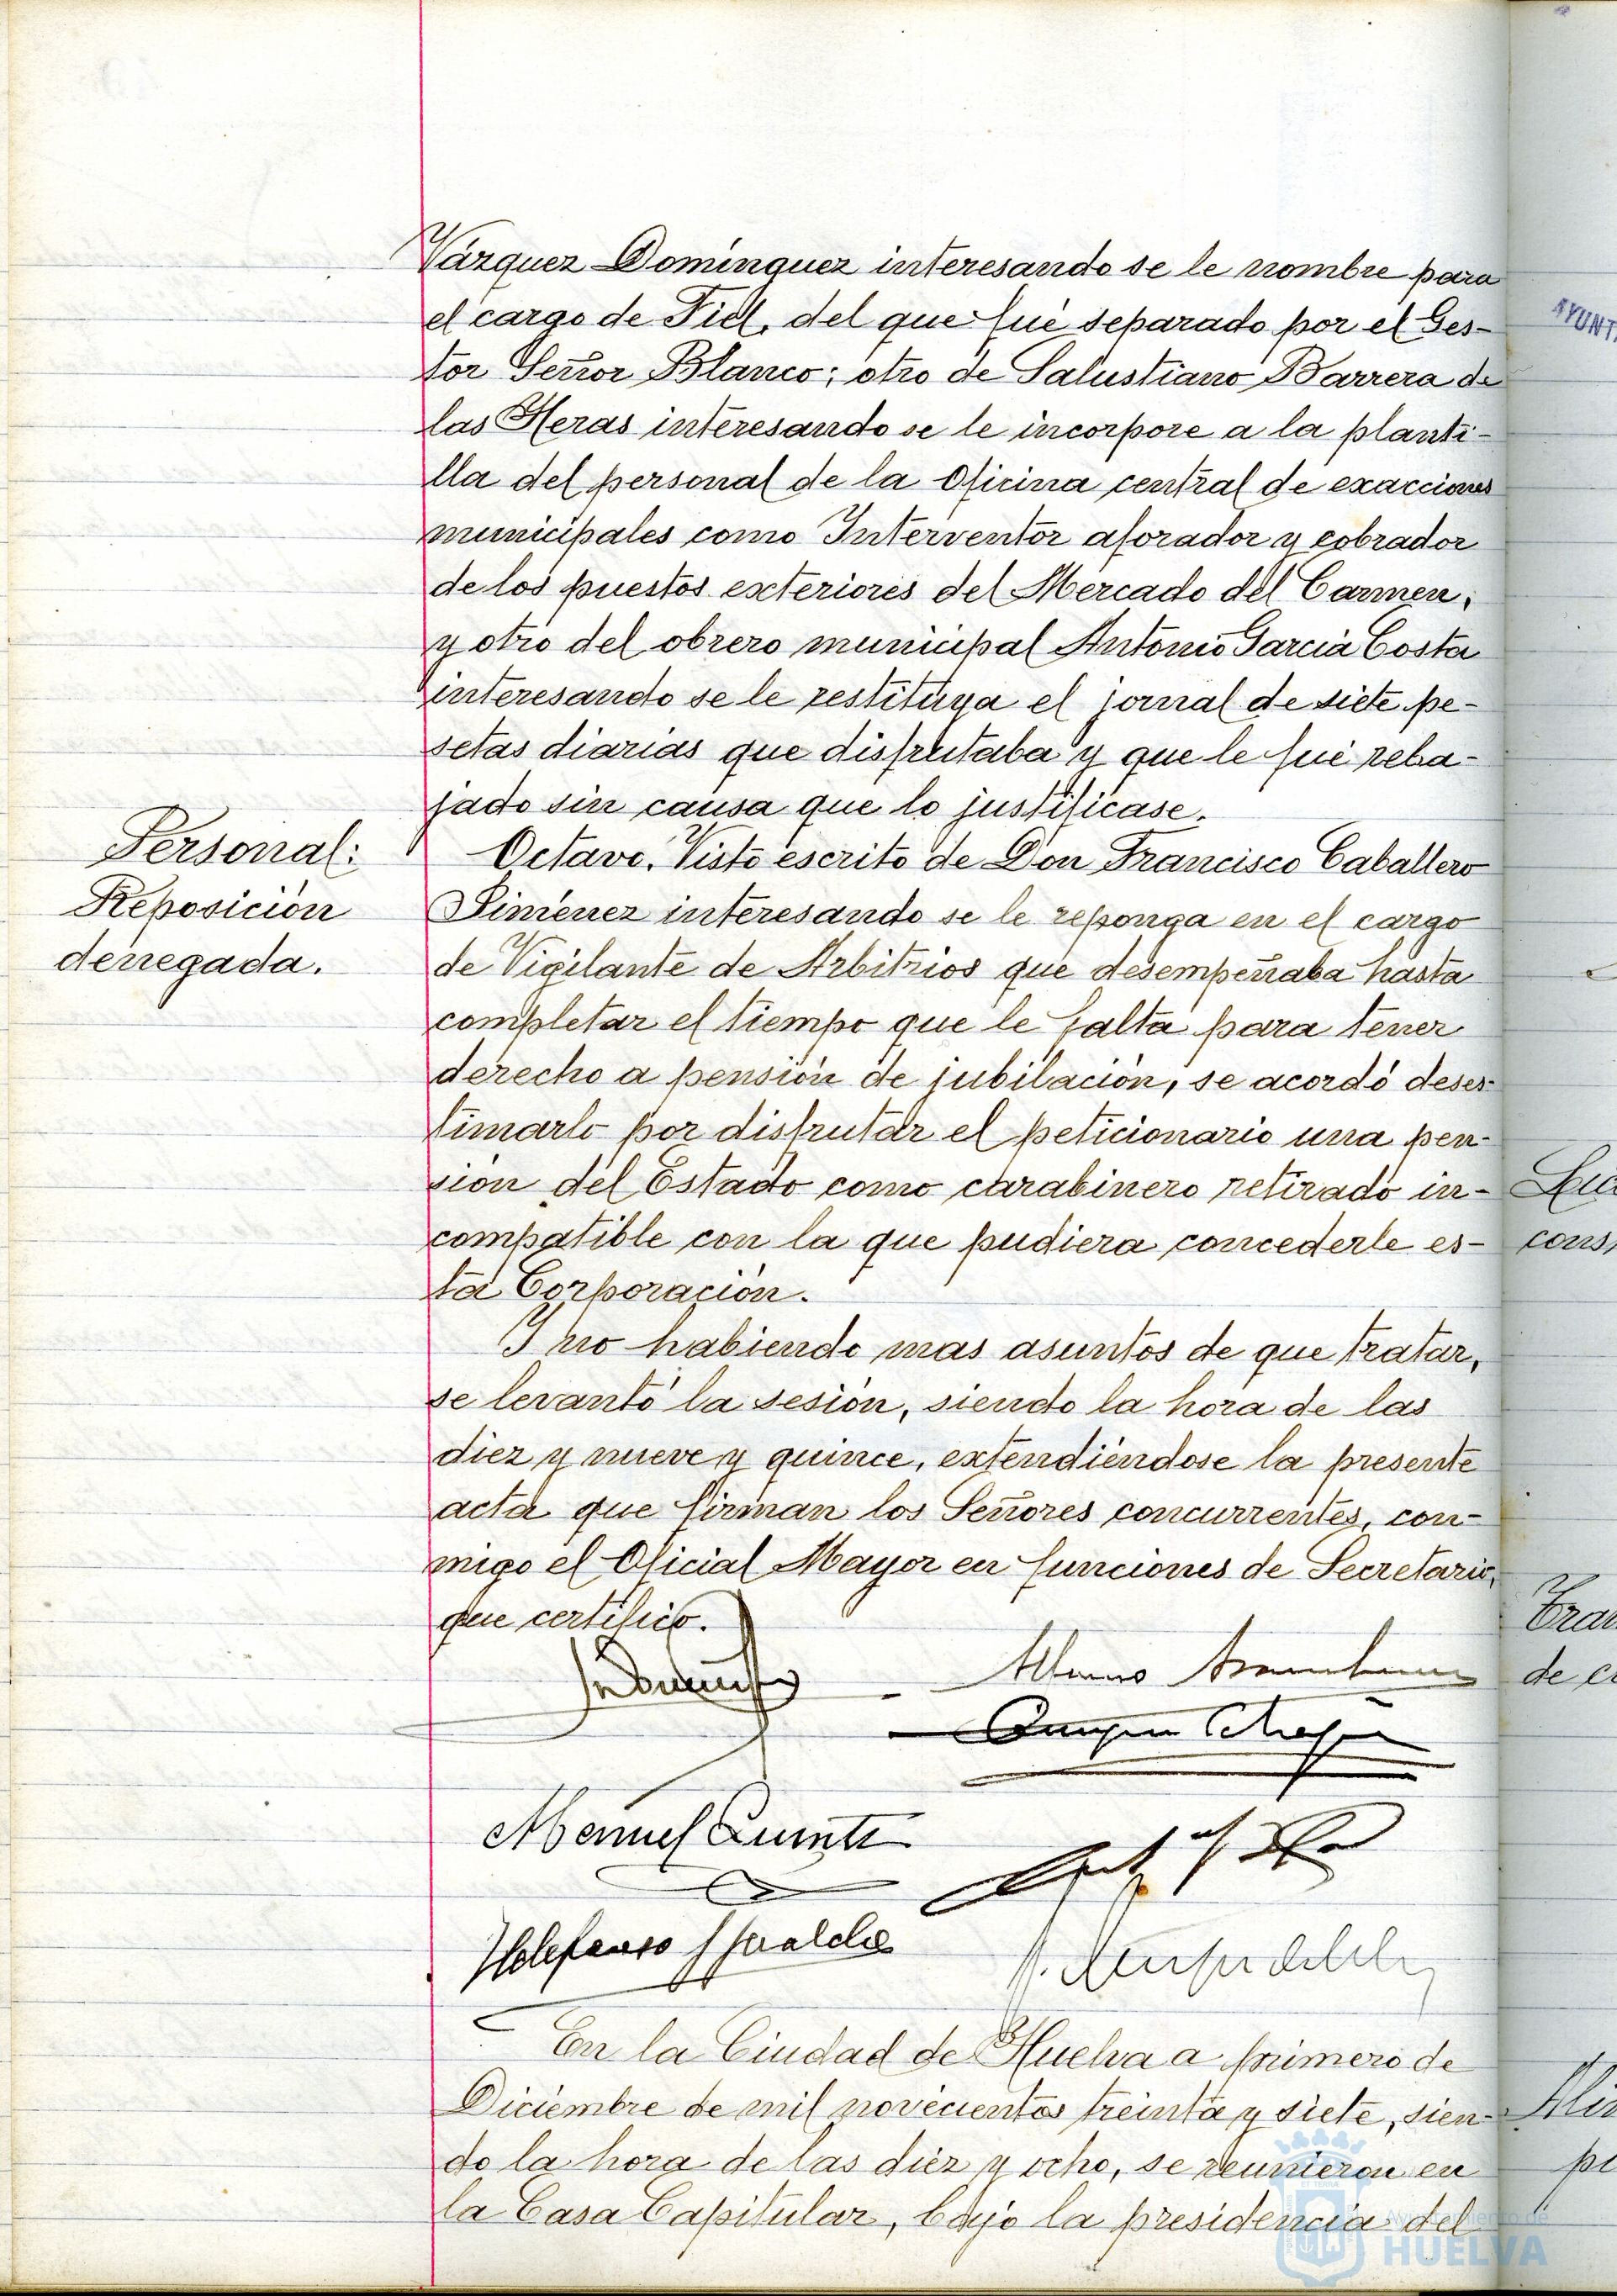 Vázquez Dominguez interesando se le nombre para
el cargo de Fiel, del que fué separado por el Ges-
tor Señor Blanco; otro de Salustiano Barrera de
las Heras interesando se le incorpore a la planti-
lla del personal de la Oficina central de exacciones
municipales como Interventor aforador y cobrador
de los puestos exteriores del Mercado del Carmen,
y otro del obrero municipal Antonio Garcia Costa
interesando se le restituya el jornal de siete pe-
setas diarias que disfrutaba y que le fué reba-
jado sin causa que lo justificase.
Personal:
Reposición
denegada.
Octavo. Visto escrito de Don Francisco Caballero
Jiménez interesando se le reponga en el cargo
de Vigilante de Arbitrios que desempeñaba hasta
completar el tiempo que le falta para tener
derecho a pensión de jubilación, se acordó deses-
timarlo por disfrutar el peticionario una pen-
sion del Estado como carabinero retirado in-
compatible con la que pudiera concederle es-
ta Corporación.
Y no habiendo mas asuntos de que tratar,
se levantó la sesión, siendo la hora de las
diez y nueve y quince, extendiéndose la presente
acta que firman los Señores concurrentes, con-
migo el Oficial Mayor en funciones de Secretario,
que certifico.
Manuel
Ildefonso
En la Ciudad de Huelva a primero de
Diciembre de mil novecientos treinta y siete, sien-
do la hora de las diez y ocho, se reunieron en
la Casa Capitular, bajo la presidencia del
Ayuntamiento de
HUELVA